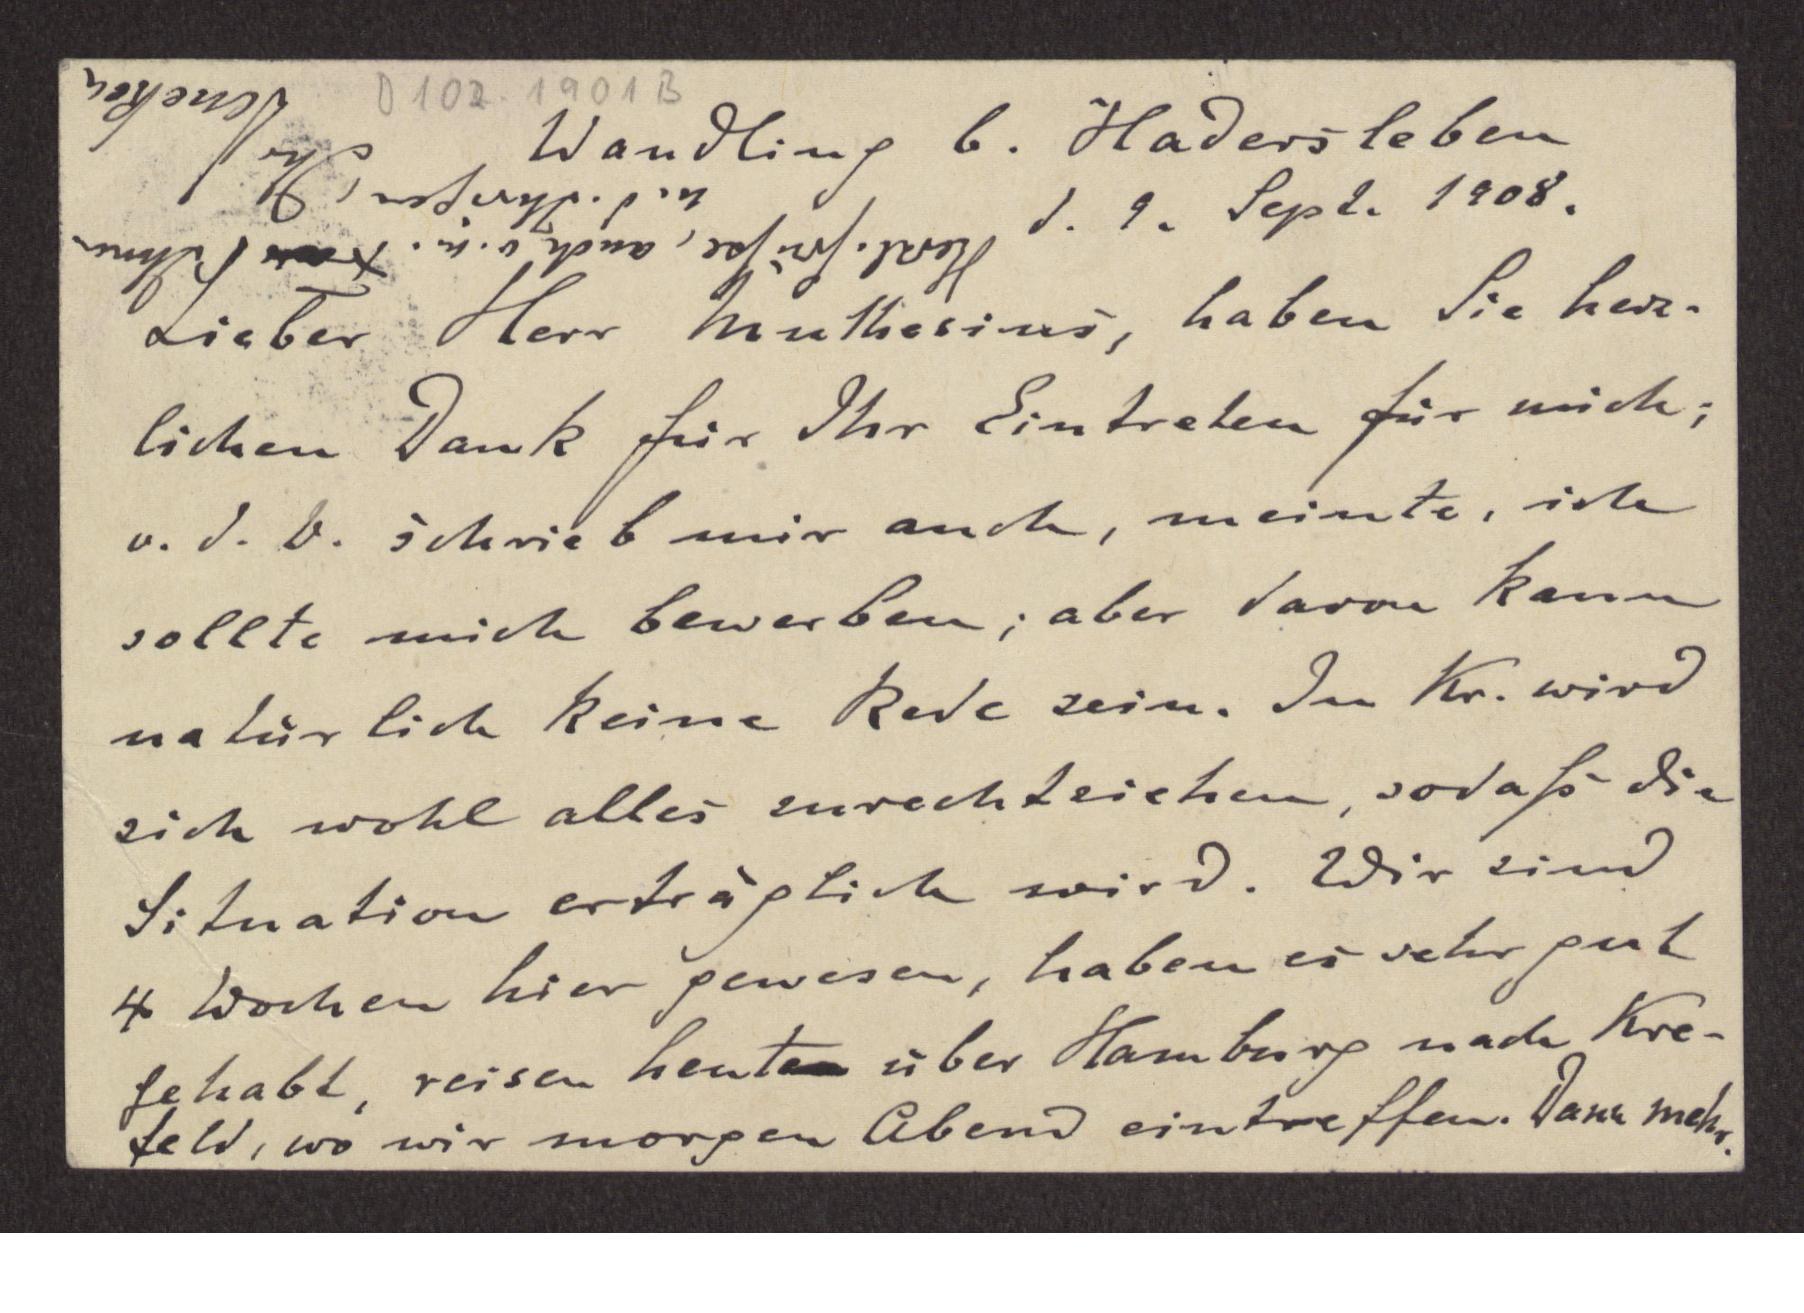 D 102 1901 B
Wandling b. Hadersleben
d. 9. Sept. 1908.
Lieber Herr Muthesius, haben Sie herz-
lichen Dank für Ihr Eintreten für mich;
v. d. V. schrieb mir auch, meinte, ich
sollte mich bewerben; aber davon kann
natürlich keine Rede sein. In Kr. wird
sich wohl alles zurechtziehen, sodaß die
Situation erträglich wird. Wir sind
4 Wochen hier gewesen, haben es sehr gut
gehabt, reisen heute über Hamburg nach Kre-
feld, wo wir morgen Abend eintreffen. Dann mehr.
Herzl. Grüße, auch v. m. Ihnen
u. d. Ihrigen, Ihr
Deneken